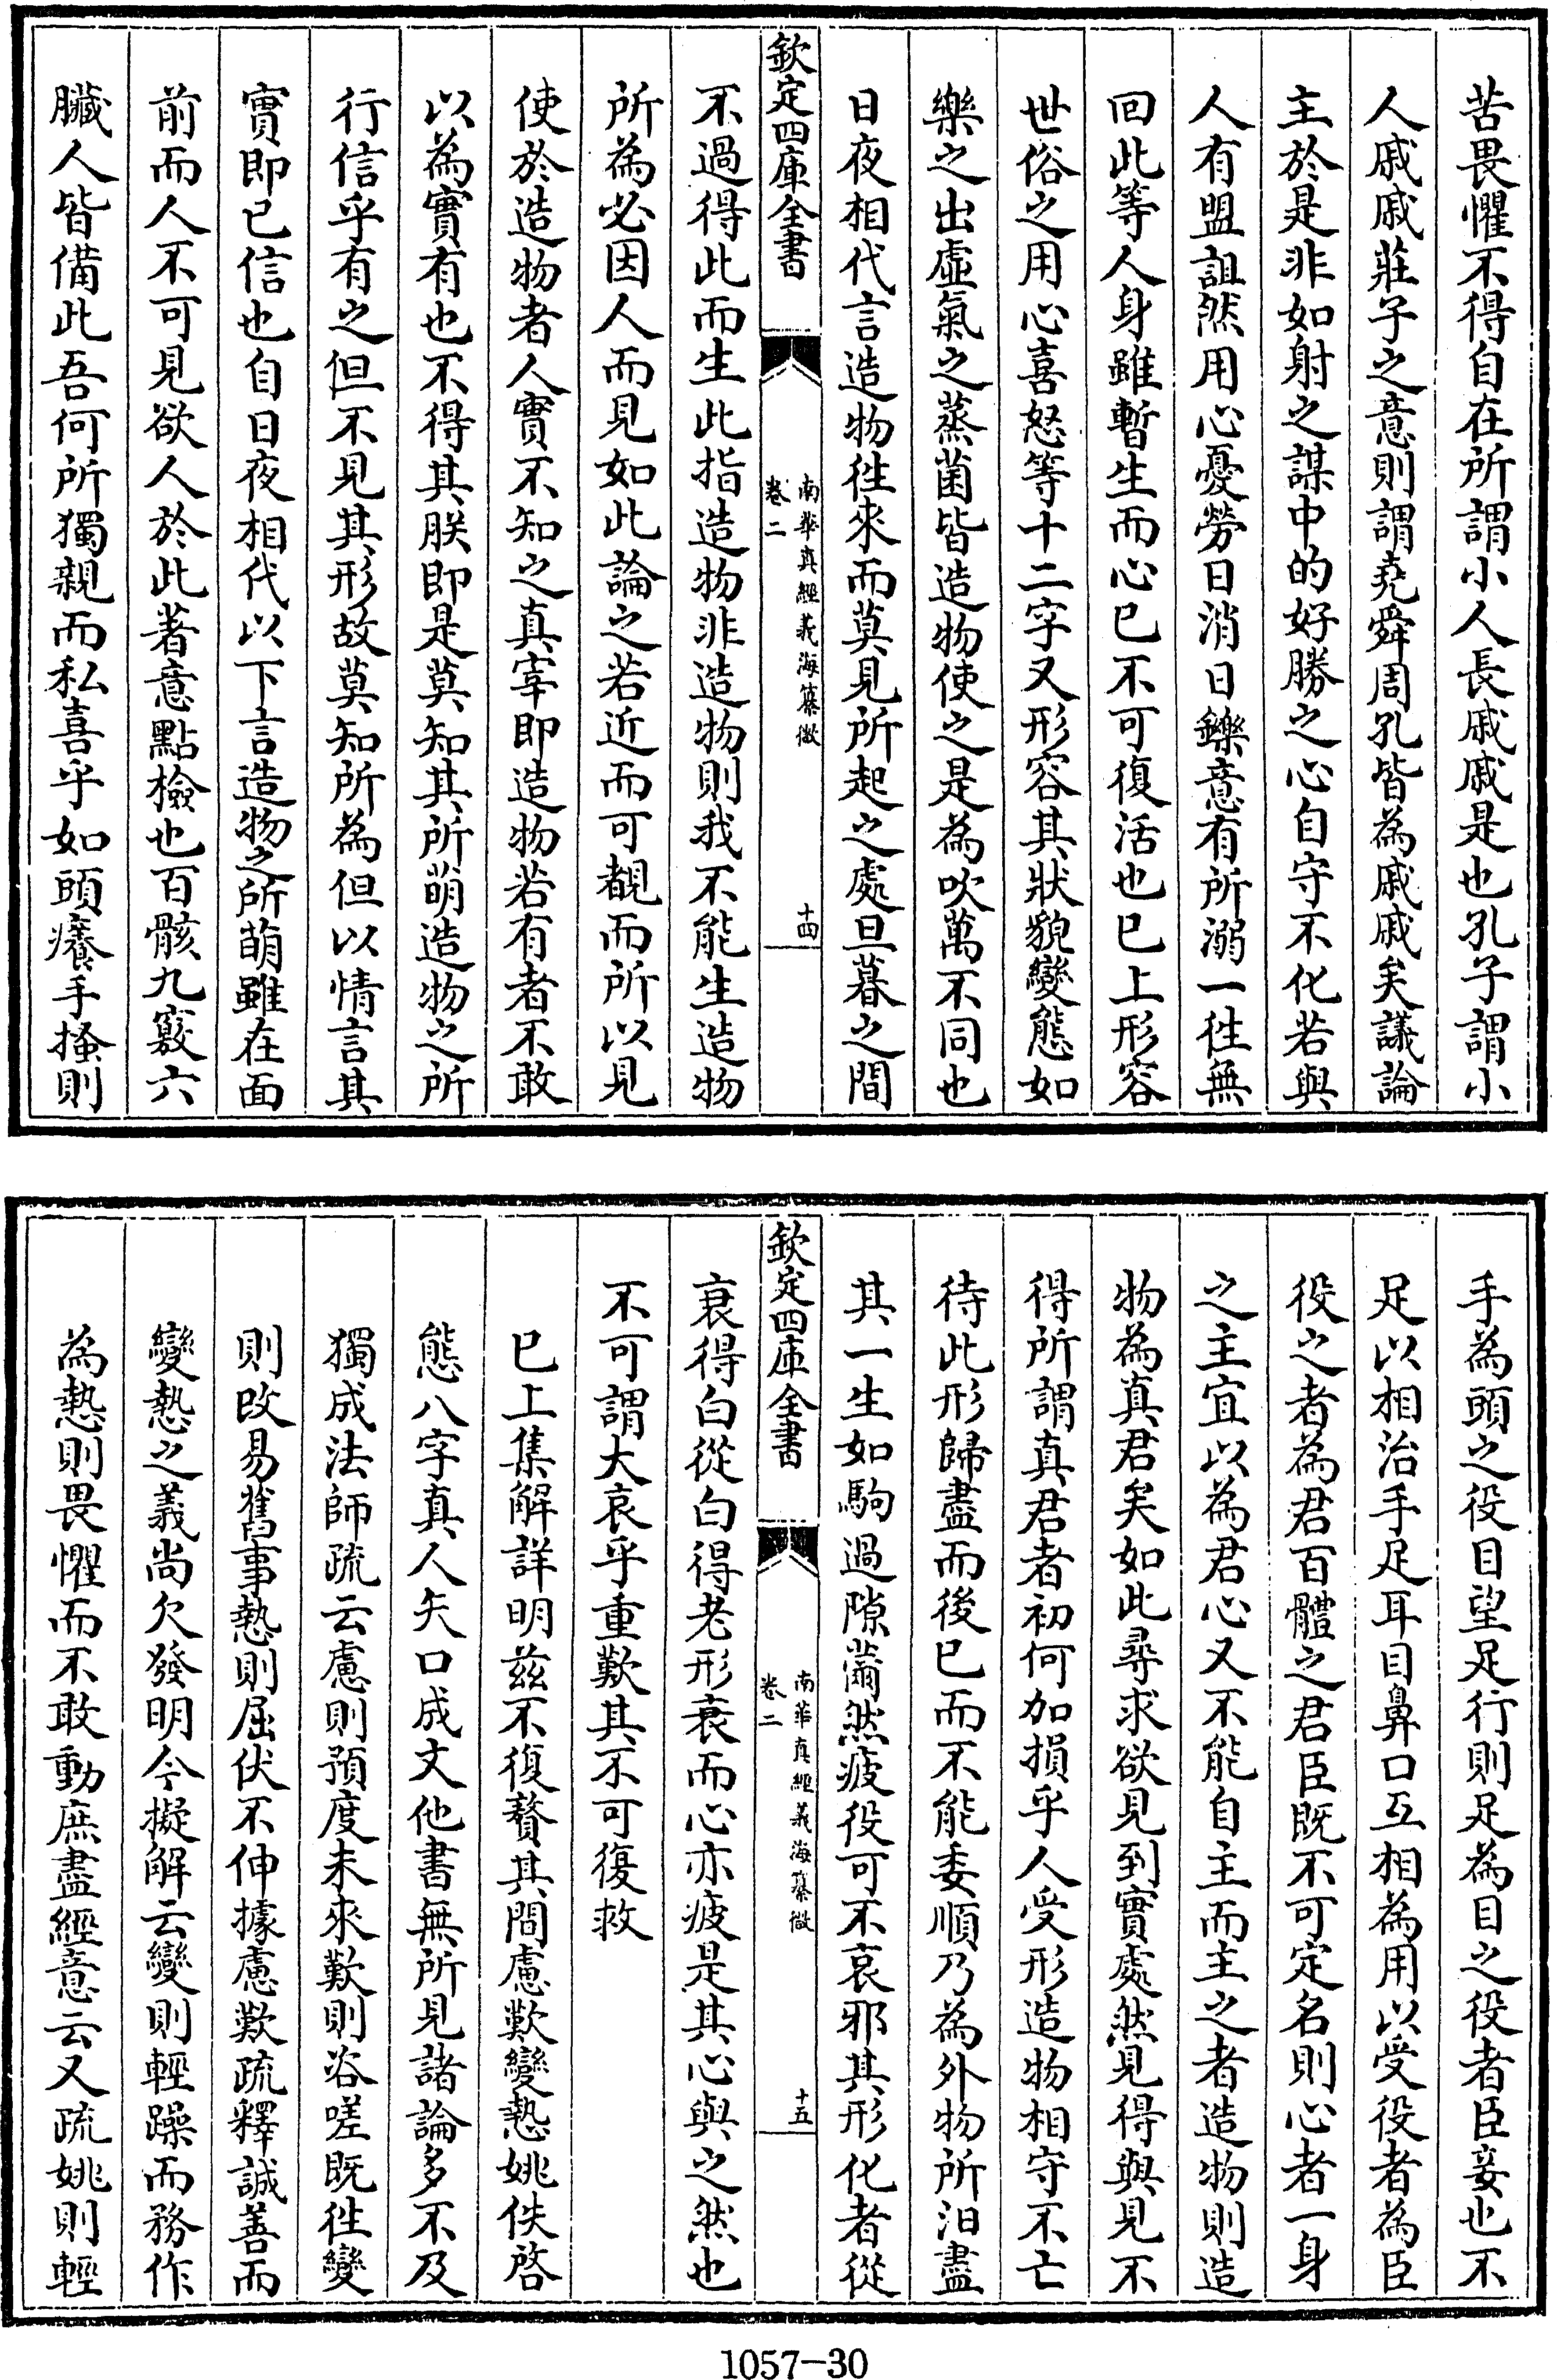 苦畏懼不得自在所謂小人長戚戚是也孔子謂小
人戚戚莊子之意則謂堯舜周孔皆為戚戚矣議論
主於是非如射之謀中的好勝之心自守不化若與
人有盟詛然用心憂勞日消日鑠意有所溺一徃無
回此等人身雖暫生而心已不可復活也已上形容
世俗之用心喜怒等十二字又形容其狀貌變態如
樂之出虛氣之蒸菌皆造物使之是為吹萬不同也
日夜相代言造物徃來而莫見所起之處旦暮之間
欽定四庫全書
南華真經義海纂微
卷二
十四
不過得此而生此指造物非造物則我不能生造物
所為必因人而見如此論之若近而可覩而所以見
使於造物者人實不知之真宰即造物若有者不敢
以為實有也不得其朕即是莫知其所萌造物之所
行信乎有之但不見其形故莫知所為但以情言其
實即已信也自日夜相代以下言造物之所萌雖在面
前而人不可見欲人於此著意點檢也百骸九竅六
臟人皆備此吾何所獨親而私喜乎如頭癢手搔則
手為頭之役目望足行則足為目之役者臣妾也不
足以相治手足耳目鼻口互相為用以受役者為臣
役之者為君百體之君臣既不可定名則心者一身
之主宜以為君心又不能自主而主之者造物則造
物為真君矣如此尋求欲見到實處然見得與見不
得所謂真君者初何加損乎人受形造物相守不亡
待此形歸盡而後已而不能委順乃為外物所汩盡
其一生如駒過隙薾然疲役可不哀邪其形化者從
欽定四庫全書
南華真經義海纂微
卷二
十五
衰得白從白得老形衰而心亦疲是其心與之然也
不可謂大哀乎重歎其不可復救
已上集解詳明兹不復贅其間慮歎變慹姚佚啓
態八字真人矢口成文他書無所見諸論多不及
獨成法師疏云慮則預度未來歎則咨嗟既徃變
則改易舊事慹則屈伏不伸據慮歎疏釋誠善而
變慹之義尚欠發明今擬解云變則輕躁而務作
為慹則畏懼而不敢動庶盡經意云又疏姚則輕
1057-30